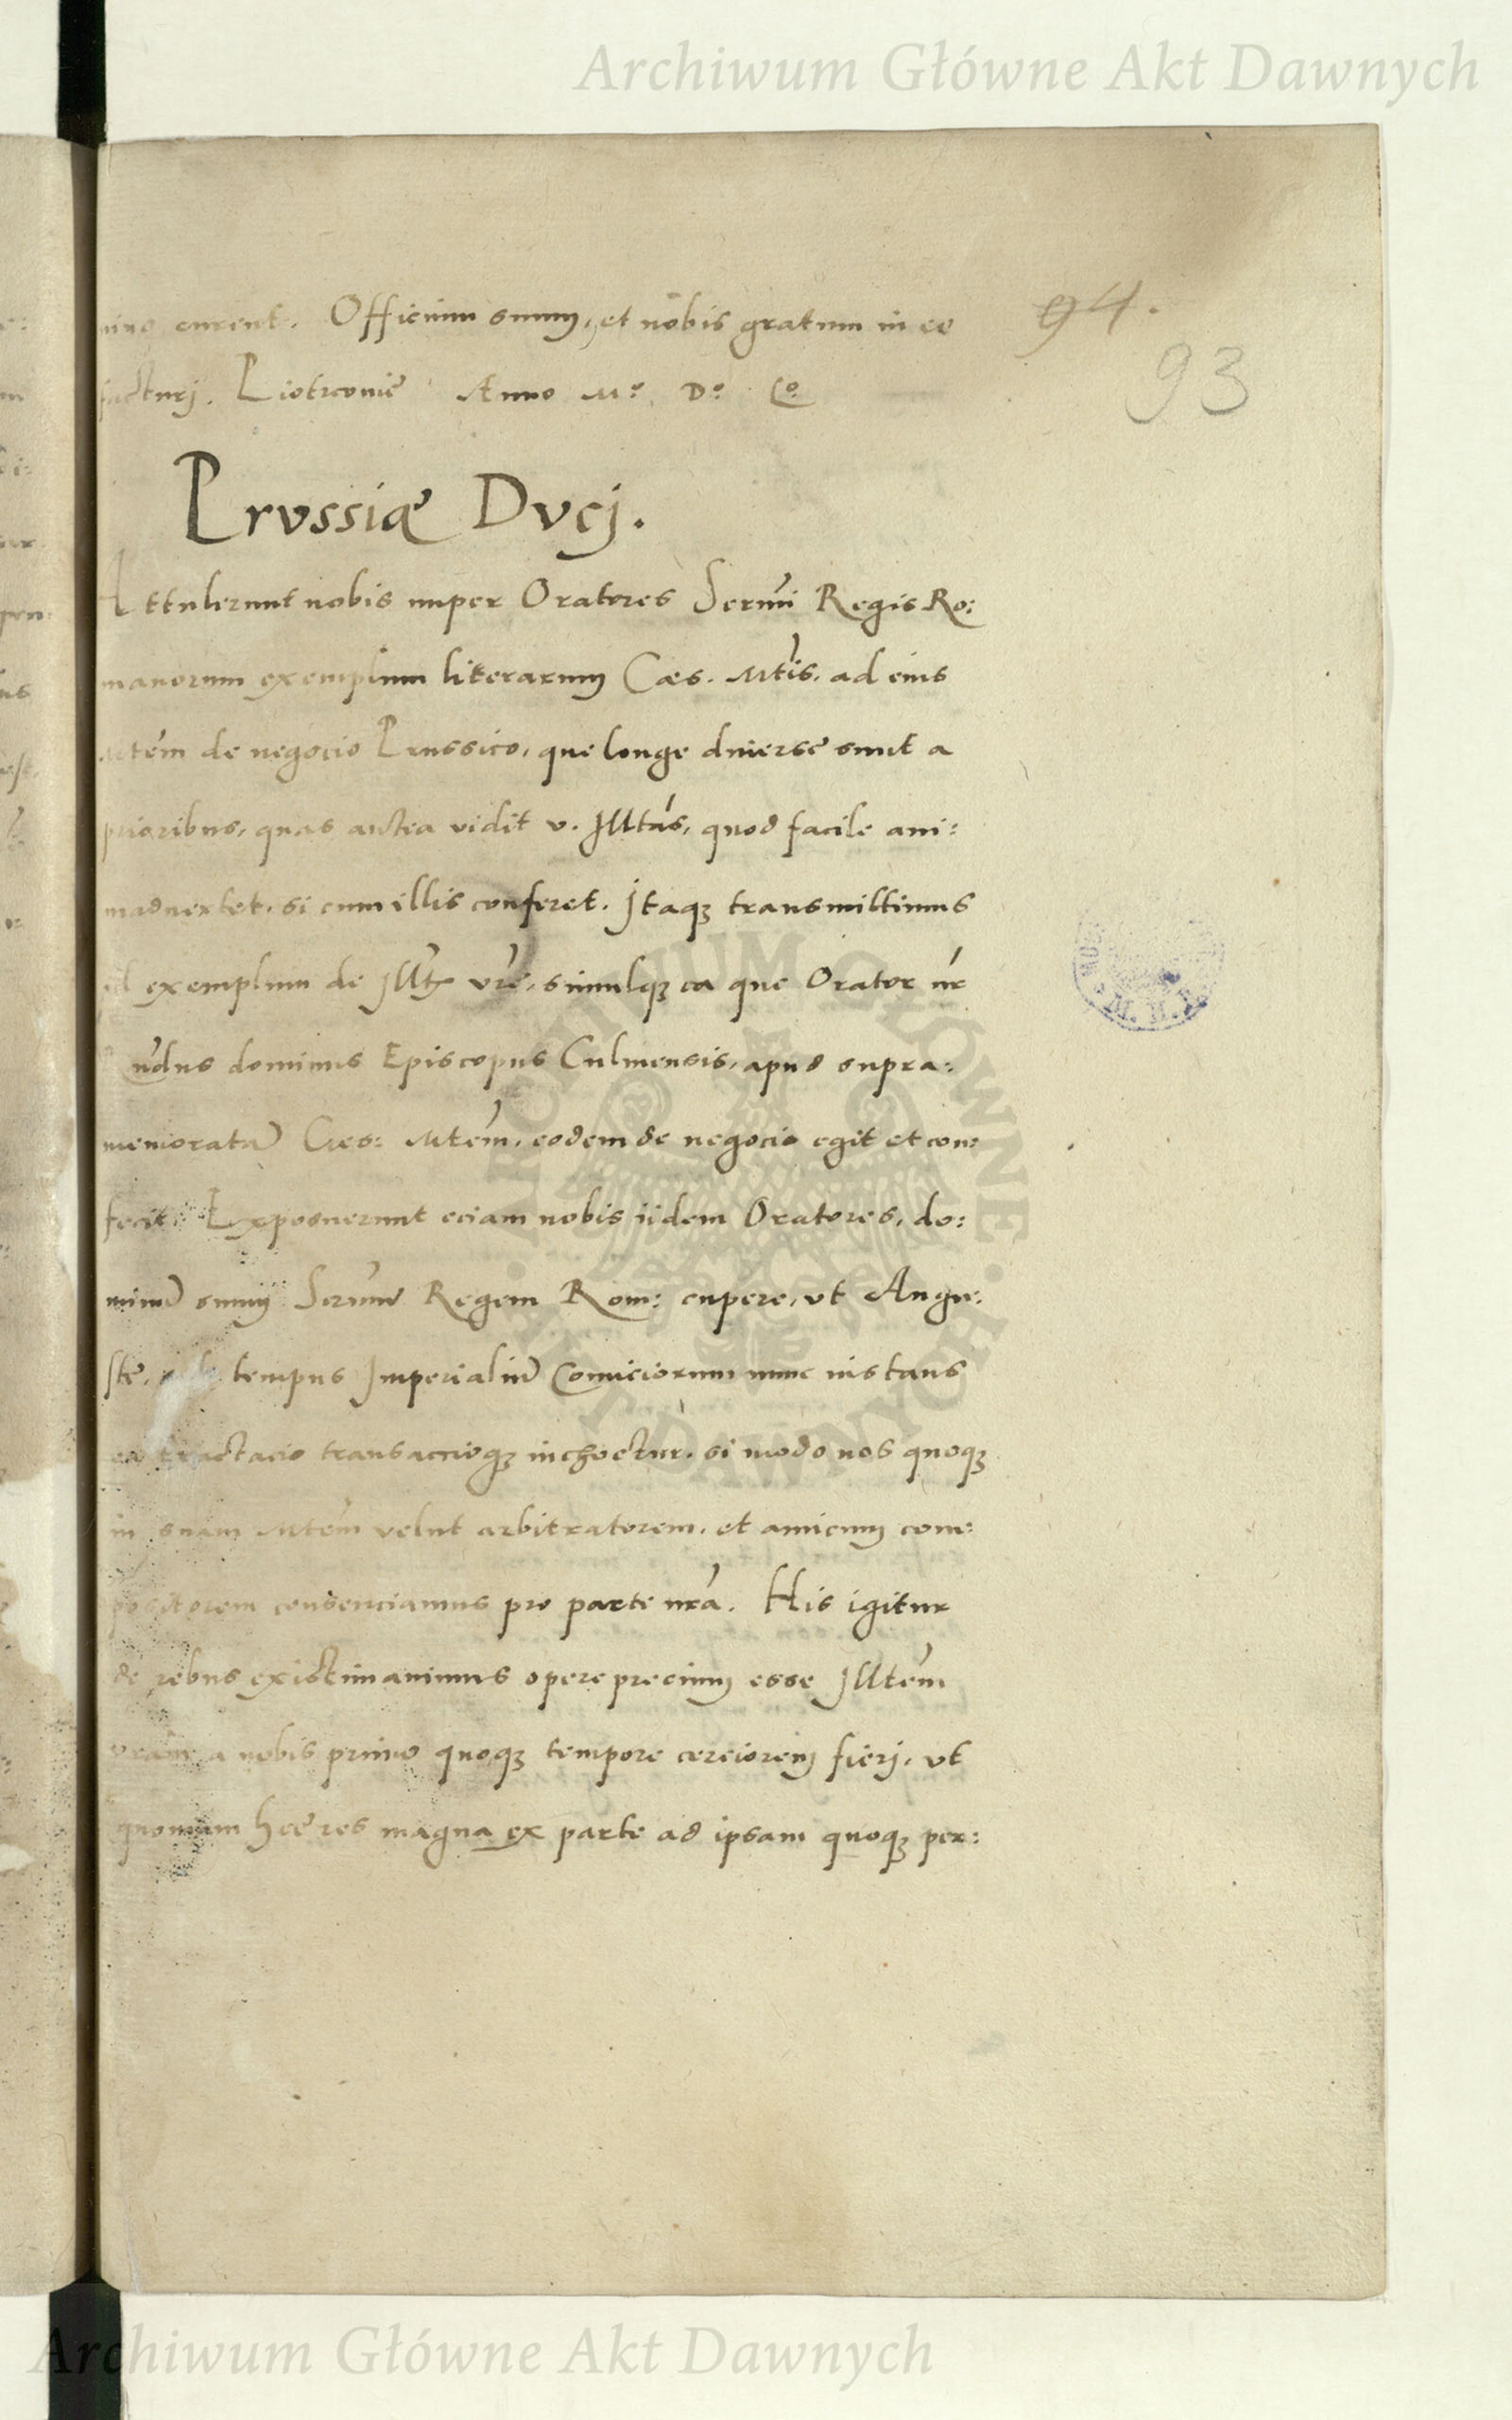 Archiwum Główne Akt Dawnych
curent. Officium suum, et nobis gratum in eo 94.
facturj. Piotrconie Anno M.º D.º L.º 93
Prvssiæ Dvcj.
Attulerunt nobis nuper Oratores Sermi Regis Ro:
manorum exemplum literarum Cæs. Mtis. ad eius
Mtem de negocio Prussico, que longe diuerse sunt a
prioribus, quas antea vidit v. Illtas, quod facile ani:
maduertet, si cum illis conferet. Itaqȝ transmittimus
id exemplum de Illte vre, simulqȝ ea que Orator nr
Rndus dominus Episcopus Culmensis, apud supra:
memoratã Cæs: Mtem, eodem de negocio egit et con:
fecit. Exposuerunt eciam nobis iidem Oratores, do:
minũ suum Sermũ Regem Rom: cupere, vt Augu:
ste, tempus Imperialiũ Comiciorum nunc instans
ea tractacio transaccioqȝ inchoetur, si modo nos quoqȝ
in suam Mtem velut arbitratorem, et amicum com:
positorem consenciamus pro parte nra. His igitur
de rebus existimauimus opere precium esse Illtem
vram a nobis primo quoqȝ tempore cerciorem fierj, vt
quoniam hec res magna ex parte ad ipsam quoqȝ per:
ARCHIWUM GŁÓWNE AKT DAWNYCH
Archiwum Główne Akt Dawnych